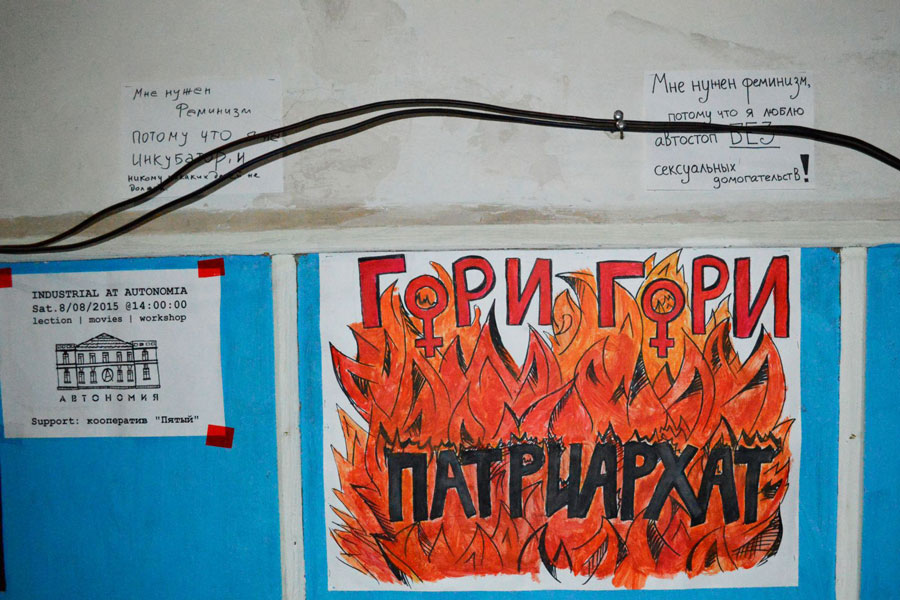 Мне нужен
Феминизм
ПОТОМУ ЧТО Я НЕ
ИНКУБАТОР, И
никому никаких детей не
должна
Мне нужен феминизм,
потому что я люблю
автостоп БЕЗ
сексуальных
домогательств!
INDUSTRIAL AT AUTONOMIA
Sat.8/08/2015 @14:00:00
lection | movies | workshop
АВТОНОМИЯ
Support: кооператив "Пятый"
ГОРИ ГОРИ
ПАТРИАРХАТ